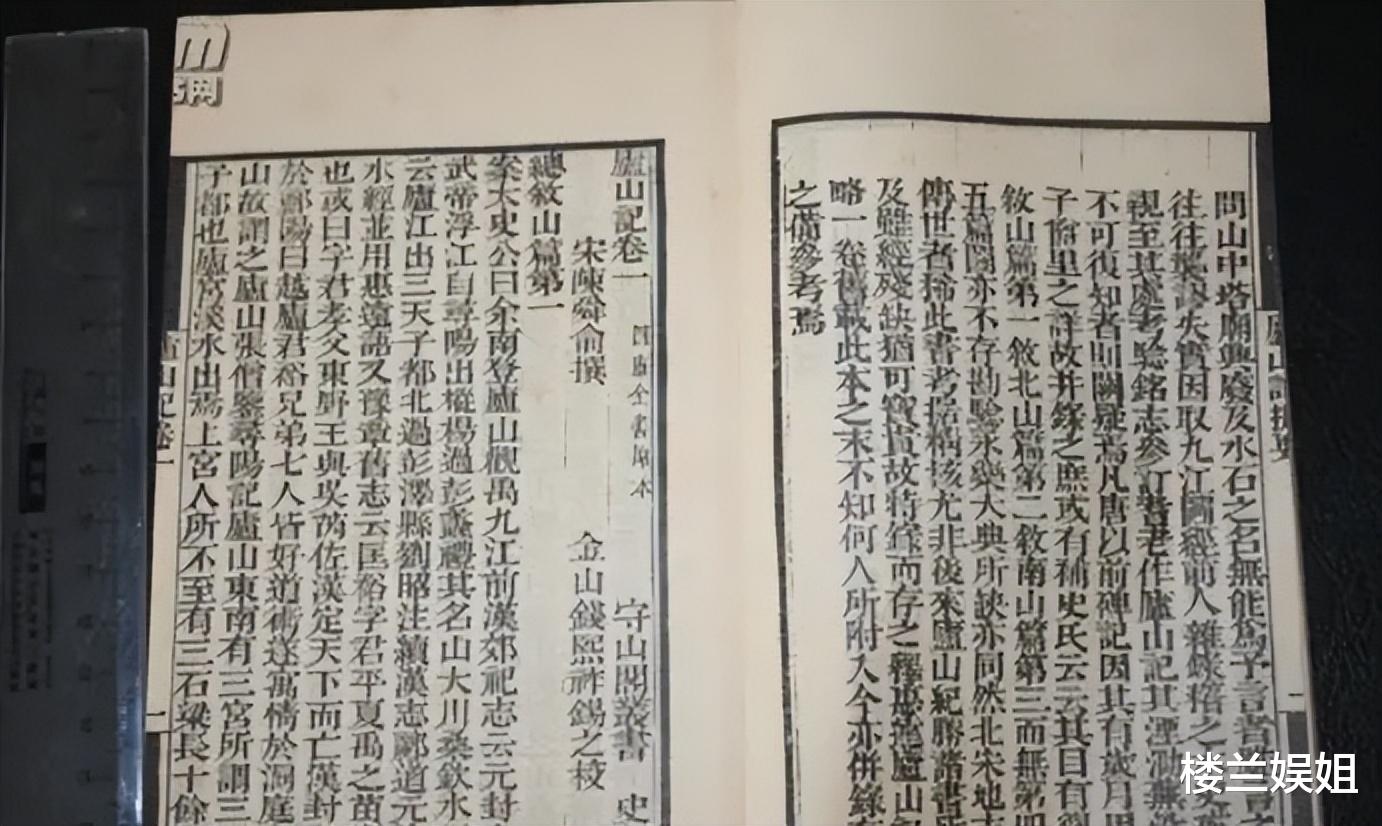 問山中塔廟興廢及水石之名無能為予言者
往往失實因取九江圖經前人雜錄稽之
視至其處考驗銘志參訂耆老作廬山記其湮泐無
不可復知者則闕疑焉凡唐以前碑記因其有歲月
子爵里之詳故并錄之庶或有補史氏云云其目有
敘山篇第一敘北山篇第二敘南山篇第三而無第四
五篇圖亦不存勘驗永樂大典所缺亦同然北宋地
傳世者稀此書考據精核尤非後來廬山紀勝諸書所
及雖經殘缺猶可寶貴故特錄而存之釋惠遠廬山
略一卷舊載此本之末不知何人所附入今亦併錄
之備參考焉
廬山記提要
二
廬山記卷一 四庫全書原本 守山閣叢書 史
宋陳舜俞撰 金山錢熙祚錫之校
總敘山篇第一
案太史公曰余南登廬山觀禹九江前漢郊祀志云元封
武帝浮江自尋陽出樅楊過彭蠡禮其名山大川桑欽水
云廬江出三天子都北過彭澤縣劉昭注續漢志酈道元
水經並用惠遠語又豫章舊志云匡裕字君平夏禹之苗
也或曰字君孝父東野王與吳芮佐漢定天下而亡漢封
於鄡陽曰越廬君裕兄弟七人皆好道術遂寓情於洞庭
山故謂之廬山張僧鑒尋陽記廬山東南有三宮所謂三
子都也廬宮溪水出焉上宮人所不至有三石梁長十餘
廬山記卷一
一
网
楼兰娱姐